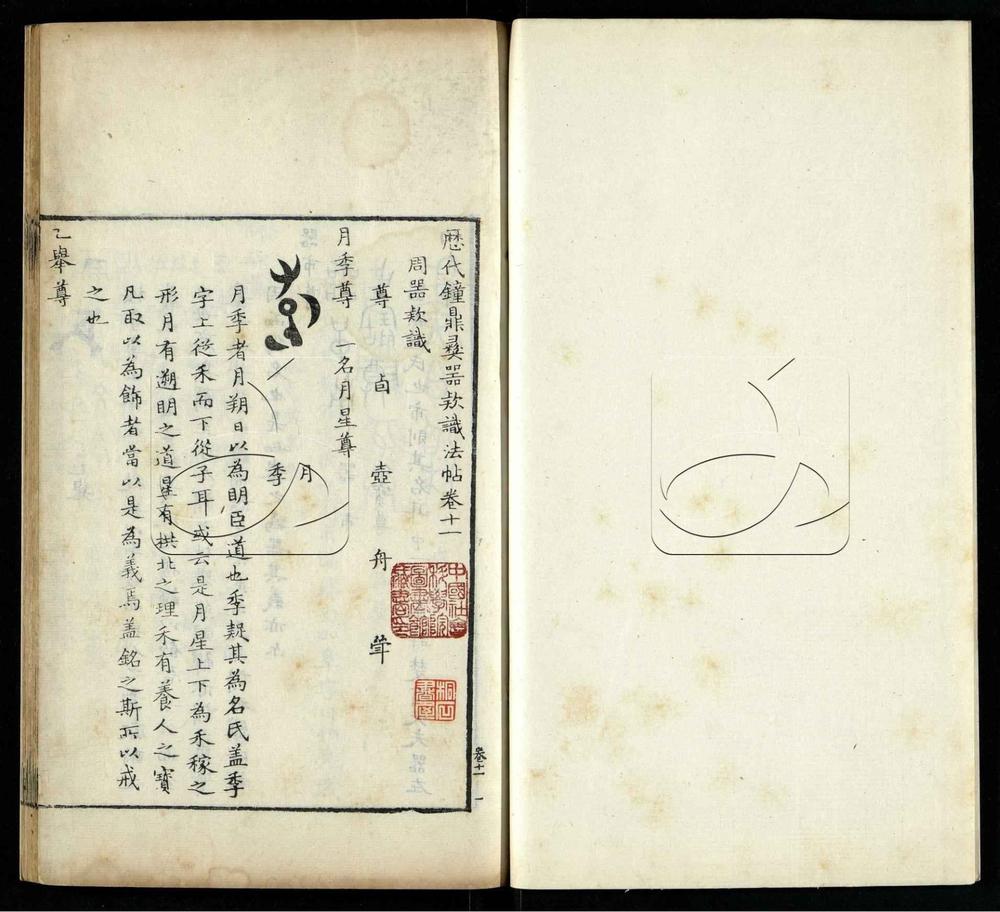 歷代鐘鼎彝器款識法帖卷十一
周器款識
尊 卣 壺 舟 斝
月季尊 一名月星尊
月
季
月季者月朔日以為明臣道也季疑其為名氏盖季
字上從禾而下從子耳或云是月星上下為禾稼之
形月有遡明之道星有拱北之理禾有養人之寶
凡取以為飾者當以是為義焉盖銘之斯所以戒
之也
乙舉尊
卷十一 一